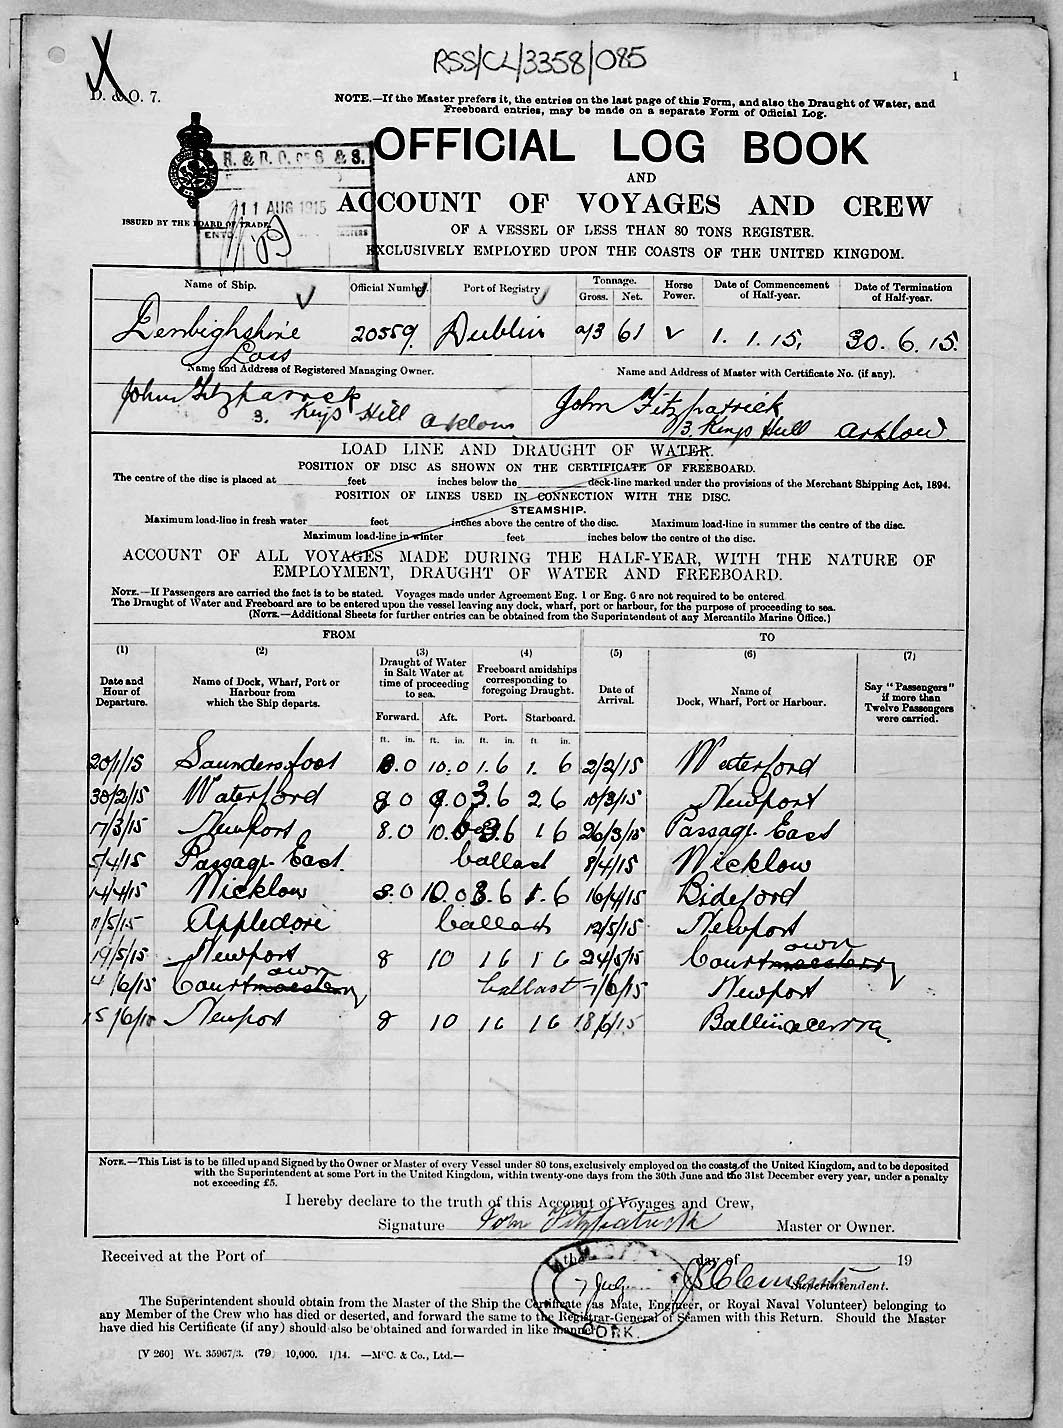 RSS/CL/3358/085
1
D. & O. 7.
NOTE.—If the Master prefers it, the entries on the last page of this Form, and also the Draught of Water, and
Freeboard entries, may be made on a separate Form of Official Log.
OFFICIAL LOG BOOK
AND
ACCOUNT OF VOYAGES AND CREW
OF A VESSEL OF LESS THAN 80 TONS REGISTER.
EXCLUSIVELY EMPLOYED UPON THE COASTS OF THE UNITED KINGDOM.
R. & D. O. OF S & S.
11 AUG 1915
ISSUED BY THE BOARD OF TRADE.
Name of Ship. Official Number. Port of Registry Tonnage. Horse Power. Date of Commencement of Half-year. Date of Termination of Half-year.
Gross. Net.
Denbighshire Lass 20559 Dublin 73 61 1. 1. 15. 30. 6. 15.
Name and Address of Registered Managing Owner. Name and Address of Master with Certificate No. (if any).
John Fitzpatrick John Fitzpatrick
3. Kings Hill Arklow 3. Kings Hill Arklow
LOAD LINE AND DRAUGHT OF WATER.
POSITION OF DISC AS SHOWN ON THE CERTIFICATE OF FREEBOARD.
The centre of the disc is placed at feet inches below the deck-line marked under the provisions of the Merchant Shipping Act, 1894.
POSITION OF LINES USED IN CONNECTION WITH THE DISC.
STEAMSHIP.
Maximum load-line in fresh water feet inches above the centre of the disc. Maximum load-line in summer the centre of the disc.
Maximum load-line in winter feet inches below the centre of the disc.
ACCOUNT OF ALL VOYAGES MADE DURING THE HALF-YEAR, WITH THE NATURE OF
EMPLOYMENT, DRAUGHT OF WATER AND FREEBOARD.
NOTE.—If Passengers are carried the fact is to be stated. Voyages made under Agreement Eng. 1 or Eng. 6 are not required to be entered
The Draught of Water and Freeboard are to be entered upon the vessel leaving any dock, wharf, port or harbour, for the purpose of proceeding to sea.
(NOTE.—Additional Sheets for further entries can be obtained from the Superintendent of any Mercantile Marine Office.)
FROM TO
(1) (2) (3) (4) (5) (6) (7)
Date and Hour of Departure. Name of Dock, Wharf, Port or Harbour from which the Ship departs. Draught of Water in Salt Water at time of proceeding to sea. Freeboard amidships corresponding to foregoing Draught. Date of Arrival. Name of Dock, Wharf, Port or Harbour. Say "Passengers" if more than Twelve Passengers were carried.
Forward. Aft. Port. Starboard.
ft. in. ft. in. ft. in. ft in.
20/1/15 Saundersfoot 8.0 10.0 1.6 1. 6 2/2/15 Waterford
30/2/15 Waterford 8 0 9.0 3.6 2 6 10/3/15 Newport
17/3/15 Newport 8.0 10.0 1 6 26/3/15 Passage East
5/4/15 Passage East. ballast 8/4/15 Wicklow
14/4/15 Wicklow 8.0 10.0 1. 6 16/4/15 Bideford
11/5/15 Appledore ballast 12/5/15 Newport
19/5/15 Newport 8 10 1 6 1 6 24/5/15 Courtown
4/6/15 Courtown ballast 7/6/15 Newport
15/6/15 Newport 8 10 1 6 1 6 18/6/15 Ballinacurra.
NOTE.—This List is to be filled up and Signed by the Owner or Master of every Vessel under 80 tons, exclusively employed on the coasts of the United Kingdom, and to be deposited
with the Superintendent at some Port in the United Kingdom, within twenty-one days from the 30th June and the 31st December every year, under a penalty
not exceeding £5.
I hereby declare to the truth of this Account of Voyages and Crew,
Signature John Fitzpatrick Master or Owner.
Received at the Port of the day of 19
7 July
CORK.
J Clements Superintendent.
The Superintendent should obtain from the Master of the Ship the Certificate (as Mate, Engineer, or Royal Naval Volunteer) belonging to
any Member of the Crew who has died or deserted, and forward the same to the Registrar-General of Seamen with this Return. Should the Master
have died his Certificate (if any) should also be obtained and forwarded in like manner.
[V 260] Wt. 35967/3. (79) 10,000. 1/14. —McC. & Co., Ltd.—